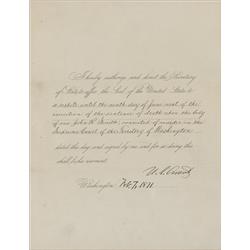 I hereby authorize and direct the Secretary
of State to affix the Seal of the United States to
a respite until the ninth day of June next of the
execution of the sentence of death upon the body
of one John R. convicted of murder in the
Supreme Court of the Territory of Washington
dated this day and signed by me and for so doing this
shall be his warrant.
U. S. Grant
Washington Feb. 7, 1871.